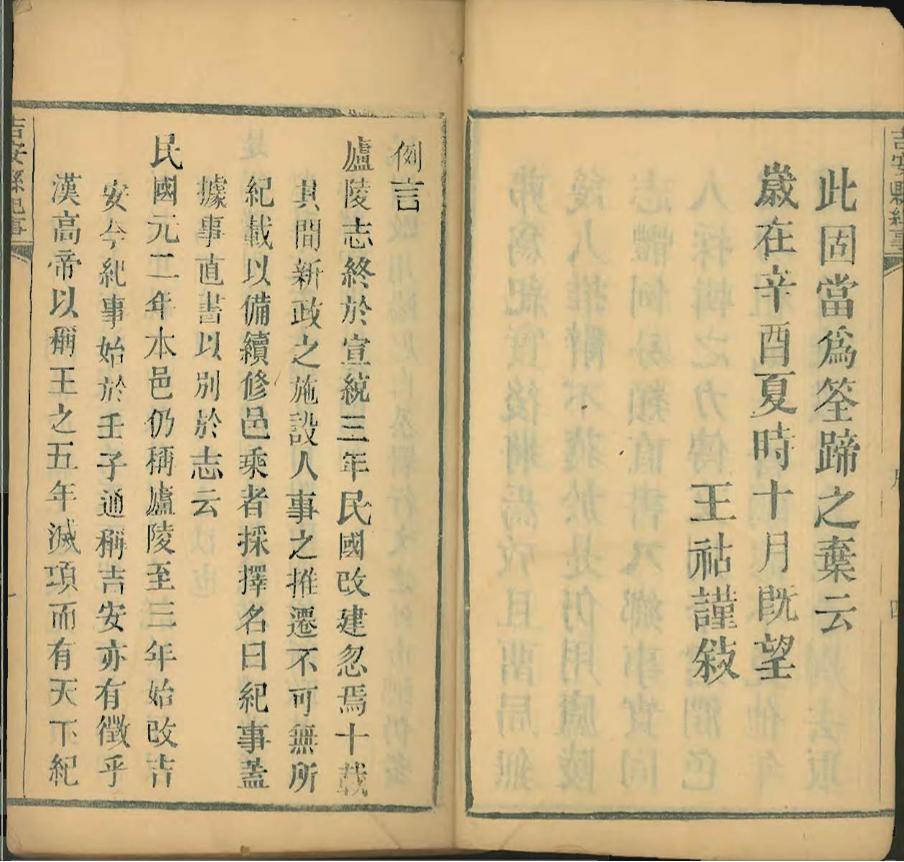 吉安縣紀事
此固當爲筌蹄之棄云
歲在辛酉夏時十月旣望
王祜謹敍
序
四
例言
廬陵志終於宣統三年民國改建忽焉十載
其間新政之施設人事之推遷不可無所
紀載以備續修邑乘者採擇名曰紀事蓋
據事直書以別於志云
民國元二年本邑仍稱廬陵至三年始改吉
安今紀事始於壬子通稱吉安亦有徵乎
漢高帝以稱王之五年滅項而有天下紀
吉安縣紀事
一